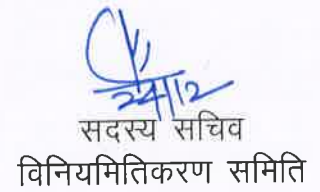 24/12
सदस्य सचिव
विनियमितिकरण समिति